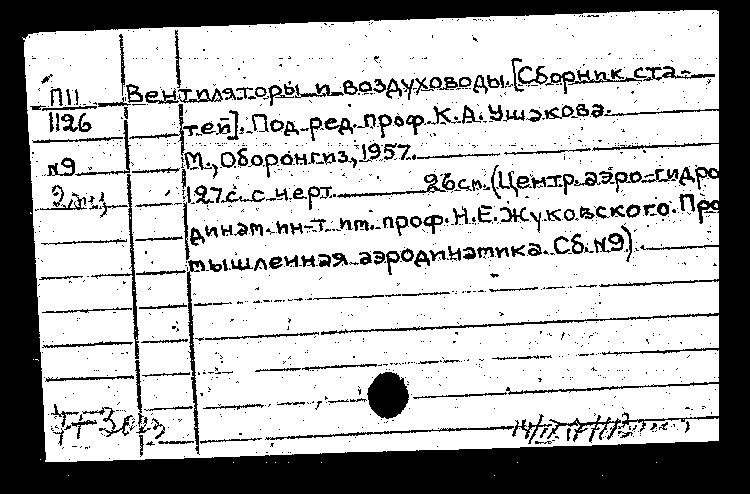 П11 Вентиляторы и воздуховоды. [Сборник ста-
1126 тей]. Под ред. проф. К.А. Ушакова.
N9 М., Оборонгиз, 1957.
2 экз 127с. с черт. 26см. (Центр. аэро-гидро
динам. ин-т им. проф. Н.Е. Жуковского. Про
мышленная аэродинамика. Сб. N9).